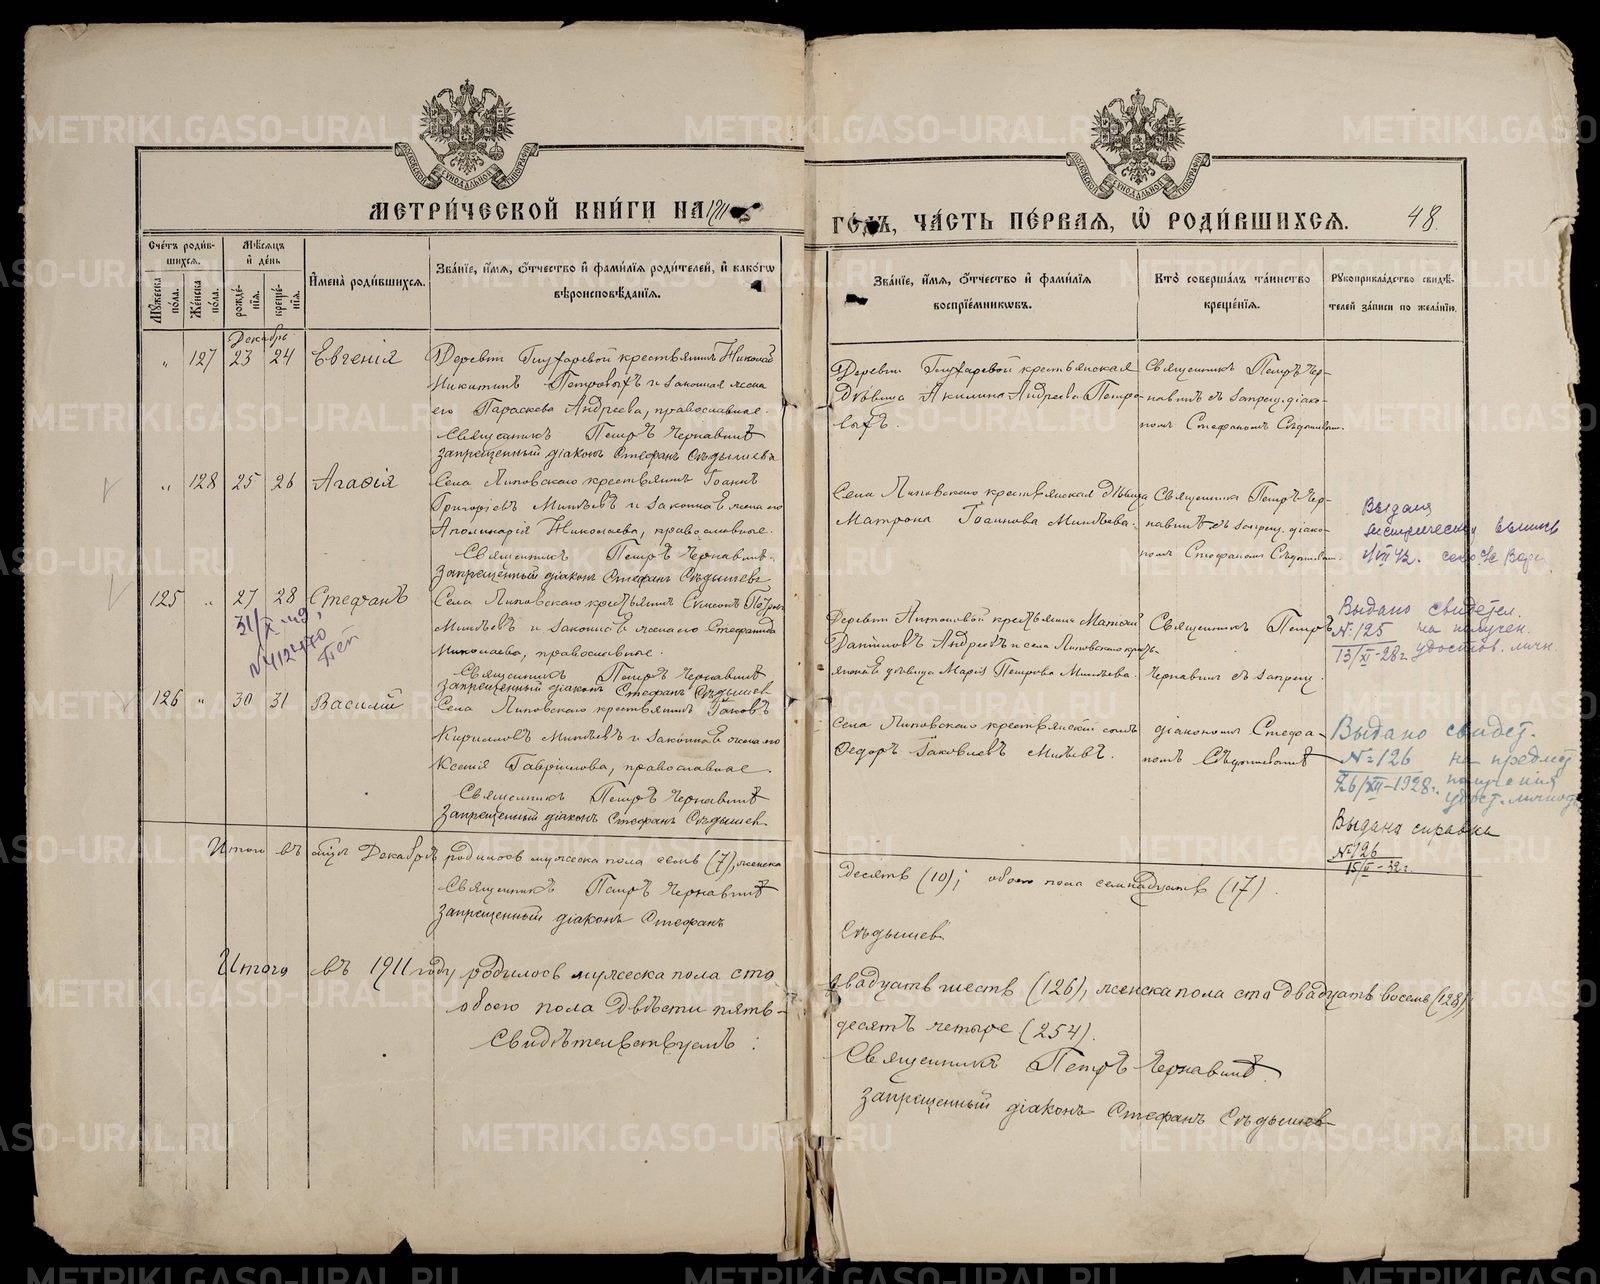 МЕТРИ́ЧЕСКОЙ КНИ́ГИ НА 1911
ГО́ДЪ, ЧА́СТЬ ПЕ́РВАЯ, Ѿ РОДИ́ВШИХСЯ.
48.
Сче́тъ роди́вшихся.
Мѣ́сяцъ и҆ де́нь
Мꙋ́жеска по́ла.
Же́нска по́ла.
рожде́нїя.
креще́нїя.
И҆мена̀ роди́вшихся.
Зва́нїе, и҆́мя, ѻ҆́тчество и҆ фамѝлїя роди́телей, и҆ како́гѡ
вѣроисповѣ́данїя.
Зва́нїе, и҆́мя, ѻ҆́тчество и҆ фамѝлїя
воспрїе́мникѡвъ.
Кто̀ соверша́лъ та́инство
креще́нїя.
Рꙋкоприкла́дство свидѣ́-
телей за́писи по жела́нїю.
Декабрь
" 127 23 24 Евгенія
крестьянинъ Николай
Никитинъ Петровыхъ и законная жена
его Параскева Андреева, православные.
Священникъ Петръ Чернавинъ
Запрещенный діаконъ Стефанъ Сѣдышевъ
крестьянская
Дѣвица Акилина Андреева Петро-
выхъ.
Священникъ Петръ Чер-
навинъ съ запрещ. діако-
номъ Стефаномъ Сѣдышевым.
" 128 25 26 Агафія
Села Липовскаго крестьянинъ Іоаннъ
Григоріевъ Минѣевъ и законная жена его
Аполинарія Николаева, православные.
Священникъ Петръ Чернавинъ.
Запрещенный діаконъ Стефанъ Сѣдышевъ
Села Липовскаго крестьянская дѣвица
Матрона Іоаннова Минѣева.
Священникъ Петръ Чер-
навинъ съ запрещ. діако-
номъ Стефаномъ Сѣдышевым.
Выдана
125 " 27 28 Стефанъ
Села Липовскаго крестьянинъ Симеонъ Петровъ
Минѣевъ и законная жена его Стефанида
Николаева, православные.
Священникъ Петръ Чернавинъ
Запрещенный діаконъ Стефанъ Сѣдышев
крестьянинъ Матѳей
Данииловъ Андреевъ и села Липовскаго кресть-
янская дѣвица Марія Петрова Минѣева.
Священникъ Петръ
Чернавинъ съ запрещ.
Выдано свидетел.
№ 125 на получен.
13/XI-28г. удостов. личн.
126 " 30 31 Василій
Села Липовскаго крестьянинъ Іаковъ
Кирилловъ Минѣевъ и законная жена его
Ксенія Гавріилова, православные.
Священникъ Петръ Чернавинъ
Запрещенный діаконъ Стефанъ Сѣдышев
Села Липовскаго крестьянскій сынъ
Ѳедоръ Іаковлевъ Минѣевъ.
діакономъ Стефа-
номъ Сѣдышевымъ
Выдано свидет.
№ 126 на предмет
26/XII-1928г. получения
удост. личнод
Выдана справка
№ 126
15/V-32г.
Итого въ мѣсяцѣ Декабрѣ родилось мужеска пола семь (7), женска
десять (10); обоего пола семнадцать (17).
Священникъ Петръ Чернавинъ
Запрещенный діаконъ Стефанъ
Сѣдышев
Итого въ 1911 году родилось мужеска пола сто
двадцать шесть (126), женска пола сто двадцать восемь (128),
обоего пола двѣсти пять-
десятъ четыре (254).
Свидѣтельствуемъ:
Священникъ Петръ Чернавинъ.
Запрещенный діаконъ Стефанъ Сѣдышев
METRIKI.GASO-URAL.RU